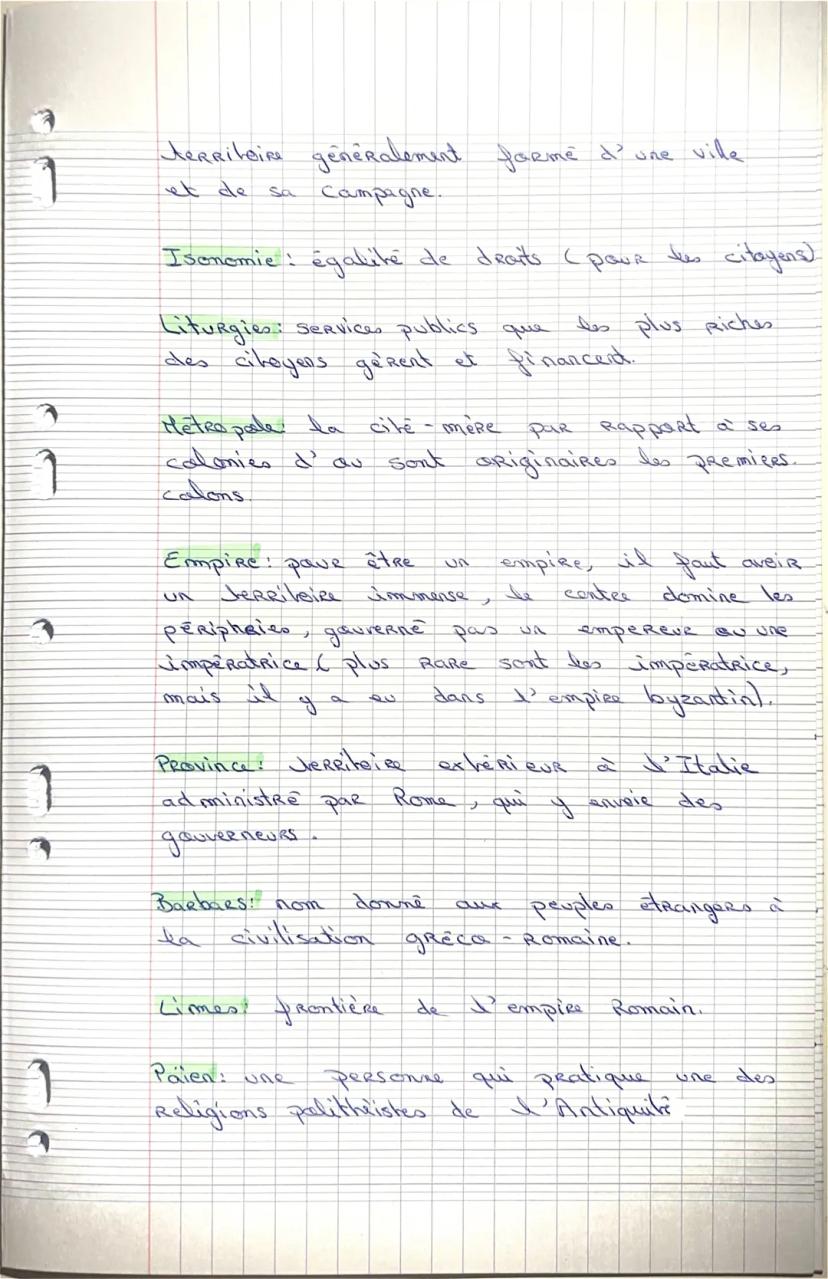 territoire généralement formé d'une ville
et de sa campagne.
Isonomie : égalité de droits (pour les citoyens)
Liturgies : services publics que les plus riches
des citoyens gèrent et financent.
Métropole : la cité-mère par rapport à ses
colonies d'ou sont originaires les premiers.
colons.
Empire : pour être un empire, il faut avoir
un territoire immense, le centre domine les
périphéies, gouverné pas un empereur ou une
impératrice ( plus rare sont les impératrice,
mais il y a eu dans l'empire byzantin).
Province : territoire extérieur à l'Italie
administré par Rome, qui y envoie des
gouverneurs.
Barbaes : nom donné aux peuples étrangers à
la civilisation gréco-romaine.
Limes : frontière de l'empire Romain.
Païen : une personne qui pratique une des
religions polithéistes de l'Antiquité